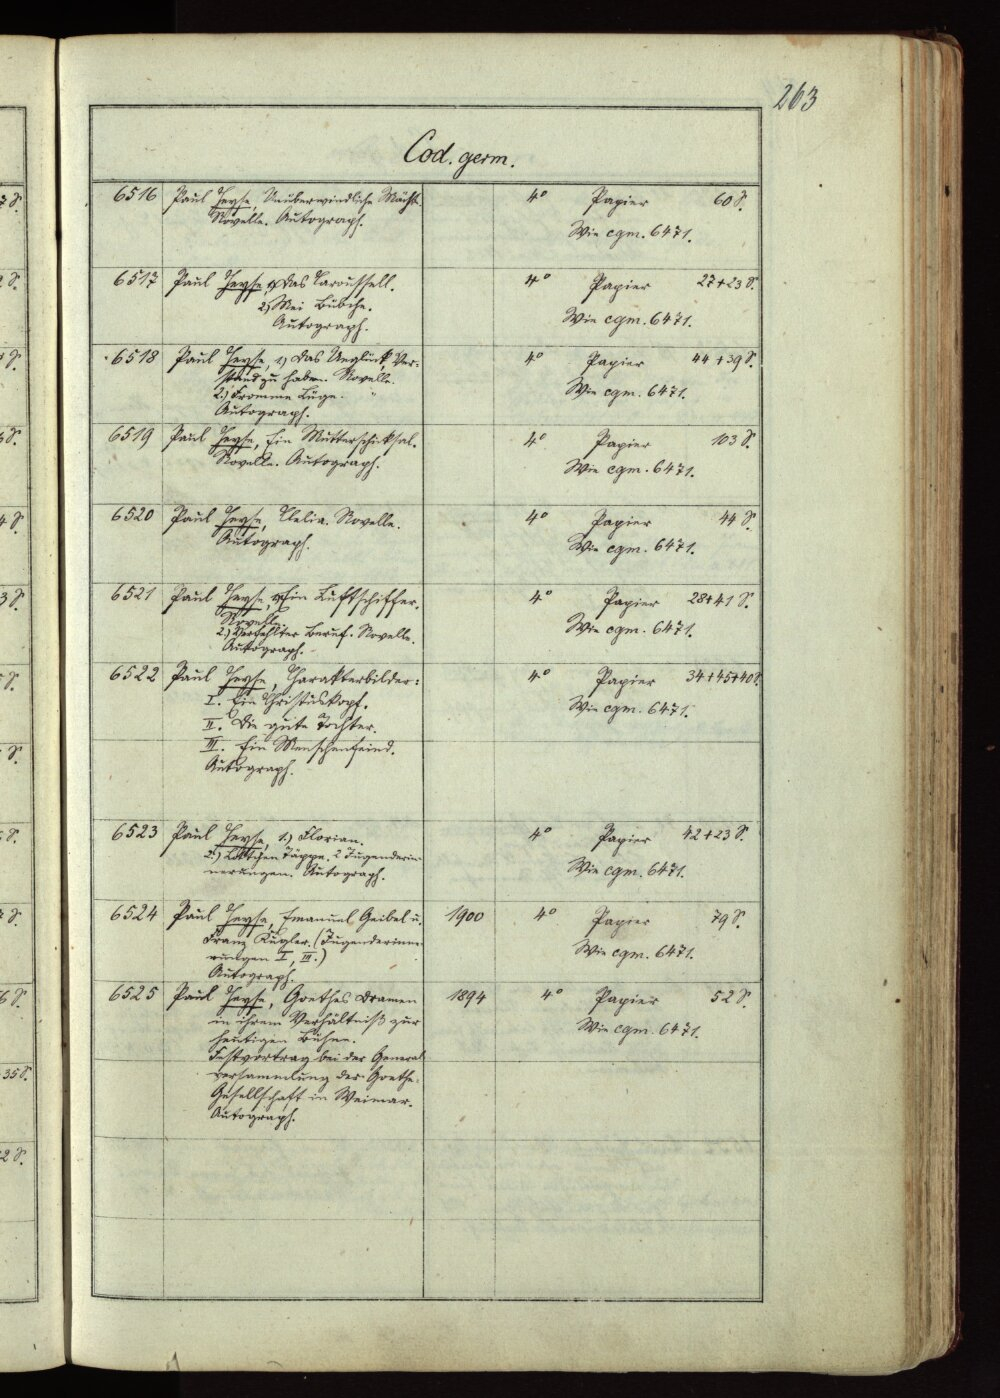 263
Cod. germ.
6516 Paul Heyse, Unüberwindliche Mächte. 4° Papier 60 S.
Novelle. Autograph. Wie cgm. 6471.
6517 Paul Heyse, 1) Das Karoussell. 4° Papier 27+23 S.
2) Mei Bübche. Wie cgm. 6471.
Autograph.
6518 Paul Heyse, 1.) Das Unglück, Ver- 4° Papier 44+39 S.
stand zu haben. Novelle. Wie cgm. 6471.
2.) Fromme Lüge. "
Autograph.
6519 Paul Heyse, Ein Mutterschicksal. 4° Papier 103 S.
Novelle. Autograph. Wie cgm. 6471.
6520 Paul Heyse, Clelia. Novelle. 4° Papier 44 S.
Autograph. Wie cgm. 6471.
6521 Paul Heyse, 1) Ein Luftschiffer. 4° Papier 28+41 S.
Novelle. Wie cgm. 6471.
2.) Verfehlter Beruf. Novelle.
Autograph.
6522 Paul Heyse, Charakterbilder: 4° Papier 34+45+40 S.
I. Ein Christuskopf. Wie cgm. 6471.
II. Die gute Tochter.
III. Ein Menschenfeind.
Autograph.
6523 Paul Heyse, 1.) Florian. 4° Papier 42+23 S.
2.) Lottchen Täppe. 2 Jugenderin- Wie cgm. 6471.
nerungen. Autograph.
6524 Paul Heyse, Emanuel Geibel u. 1900 4° Papier 79 S.
Franz Kugler. (Jugenderinne- Wie cgm. 6471.
rungen I, III.)
Autograph.
6525 Paul Heyse, Goethes Dramen 1894 4° Papier 52 S.
in ihrem Verhältniß zur Wie cgm. 6471.
heutigen Bühne.
Festvortrag bei der General
versammlung der Goethe-
Gesellschaft in Weimar.
Autograph.